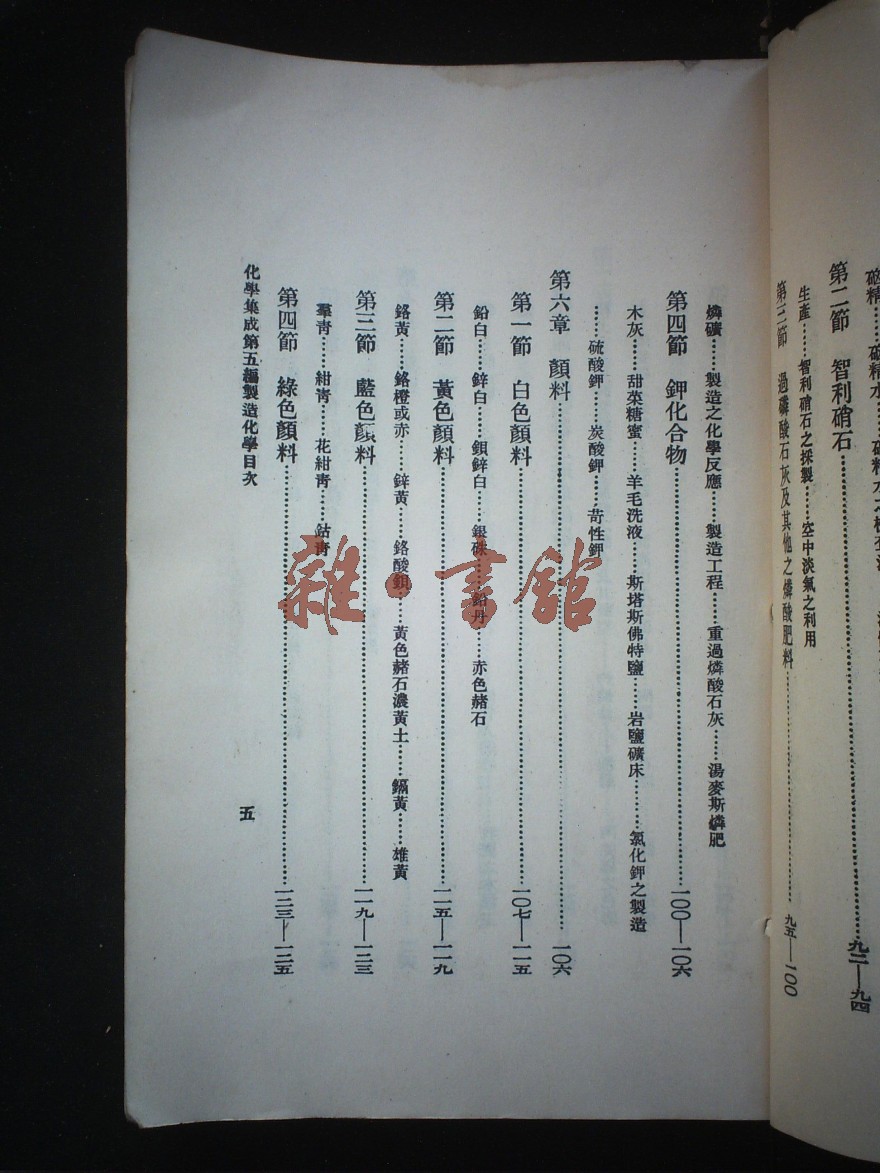 第二節　智利硝石……九二—九四
生產……智利硝石之採製……空中淡氣之利用
第三節　過磷酸石灰及其他之燐酸肥料……九五—一〇〇
燐礦……製造之化學反應……製造工程……重過燐酸石灰……湯麥斯燐肥
第四節　鉀化合物……一〇〇—一〇六
木灰……甜菜糖蜜……羊毛洗液……斯塔斯佛特鹽……岩鹽礦床……氯化鉀之製造
……硫酸鉀……炭酸鉀……苛性鉀
第六章　顏料……一〇六
第一節　白色顏料……一〇七—一一五
鉛白……鋅白……鋇鋅白……銀硃……鉛丹……赤色赭石
第二節　黃色顏料……一一五—一一九
鉻黃……鉻橙或赤……鋅黃……鉻酸鋇……黃色赭石濃黃土……鎘黃……雄黃
第三節　藍色顏料……一一九—一二三
羣青……紺青……花紺青……鈷青
第四節　綠色顏料……一二三—一二五
化學集成第五編製造化學目次
五
雜·書館